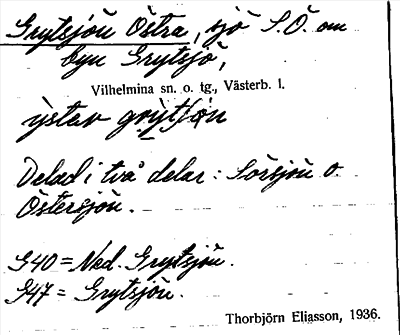 Grytsjön Östra, sjö S.Ö. om
byn Grytsjö,
Vilhelmina sn. o. tg., Västerb. l.
ystav grytʃøn
Delad i två delar: Sörsjön o.
Östersjön.
G40 = Ned. Grytsjön.
G47 = Grytsjön.
Thorbjörn Eliasson, 1936.